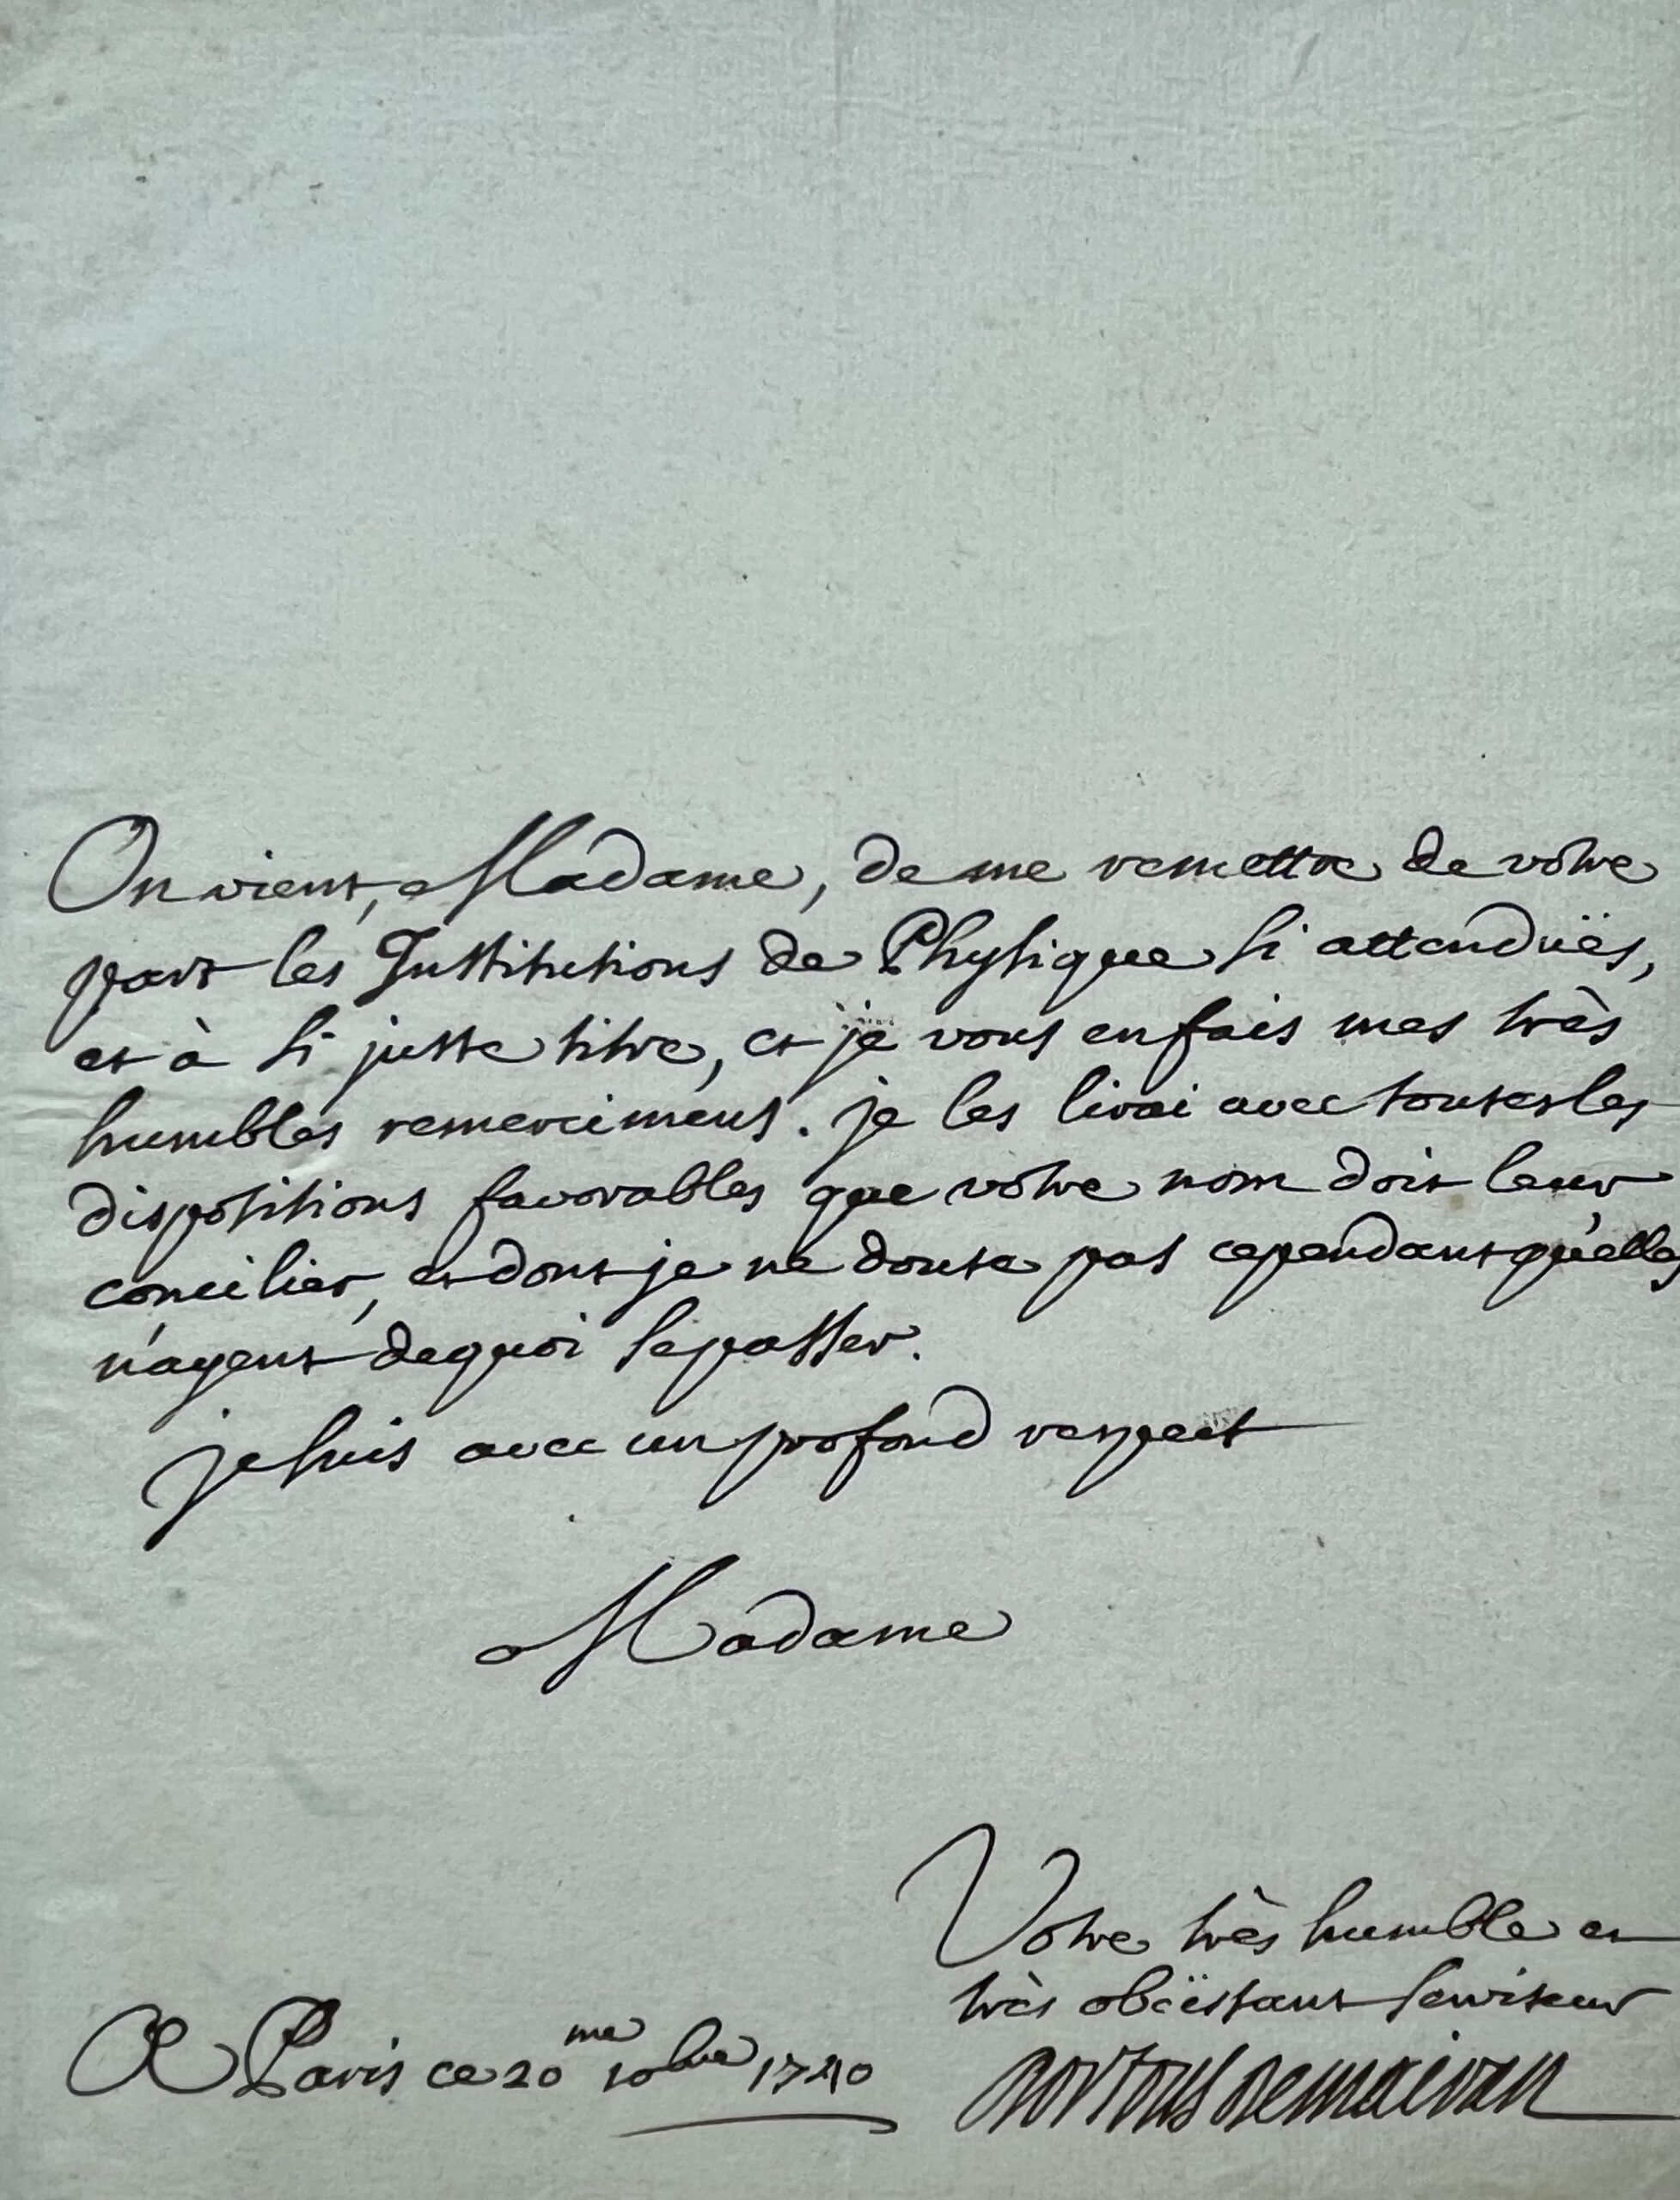 On vient, Madame, de me remettre de votre
part les Institutions de Physique si attenduës,
et à si juste titre, et je vous en fais mes très
humbles remercimens. je les lirai avec toutes les
dispositions favorables que votre nom doit leur
concilier, et dont je ne doute pas cependant qu'elles
n'ayent de quoi se passer.
je suis avec un profond respect
Madame
Votre très humble et
très obëissant serviteur
A Paris ce 20me 10bre 1740
Dortous de mairan